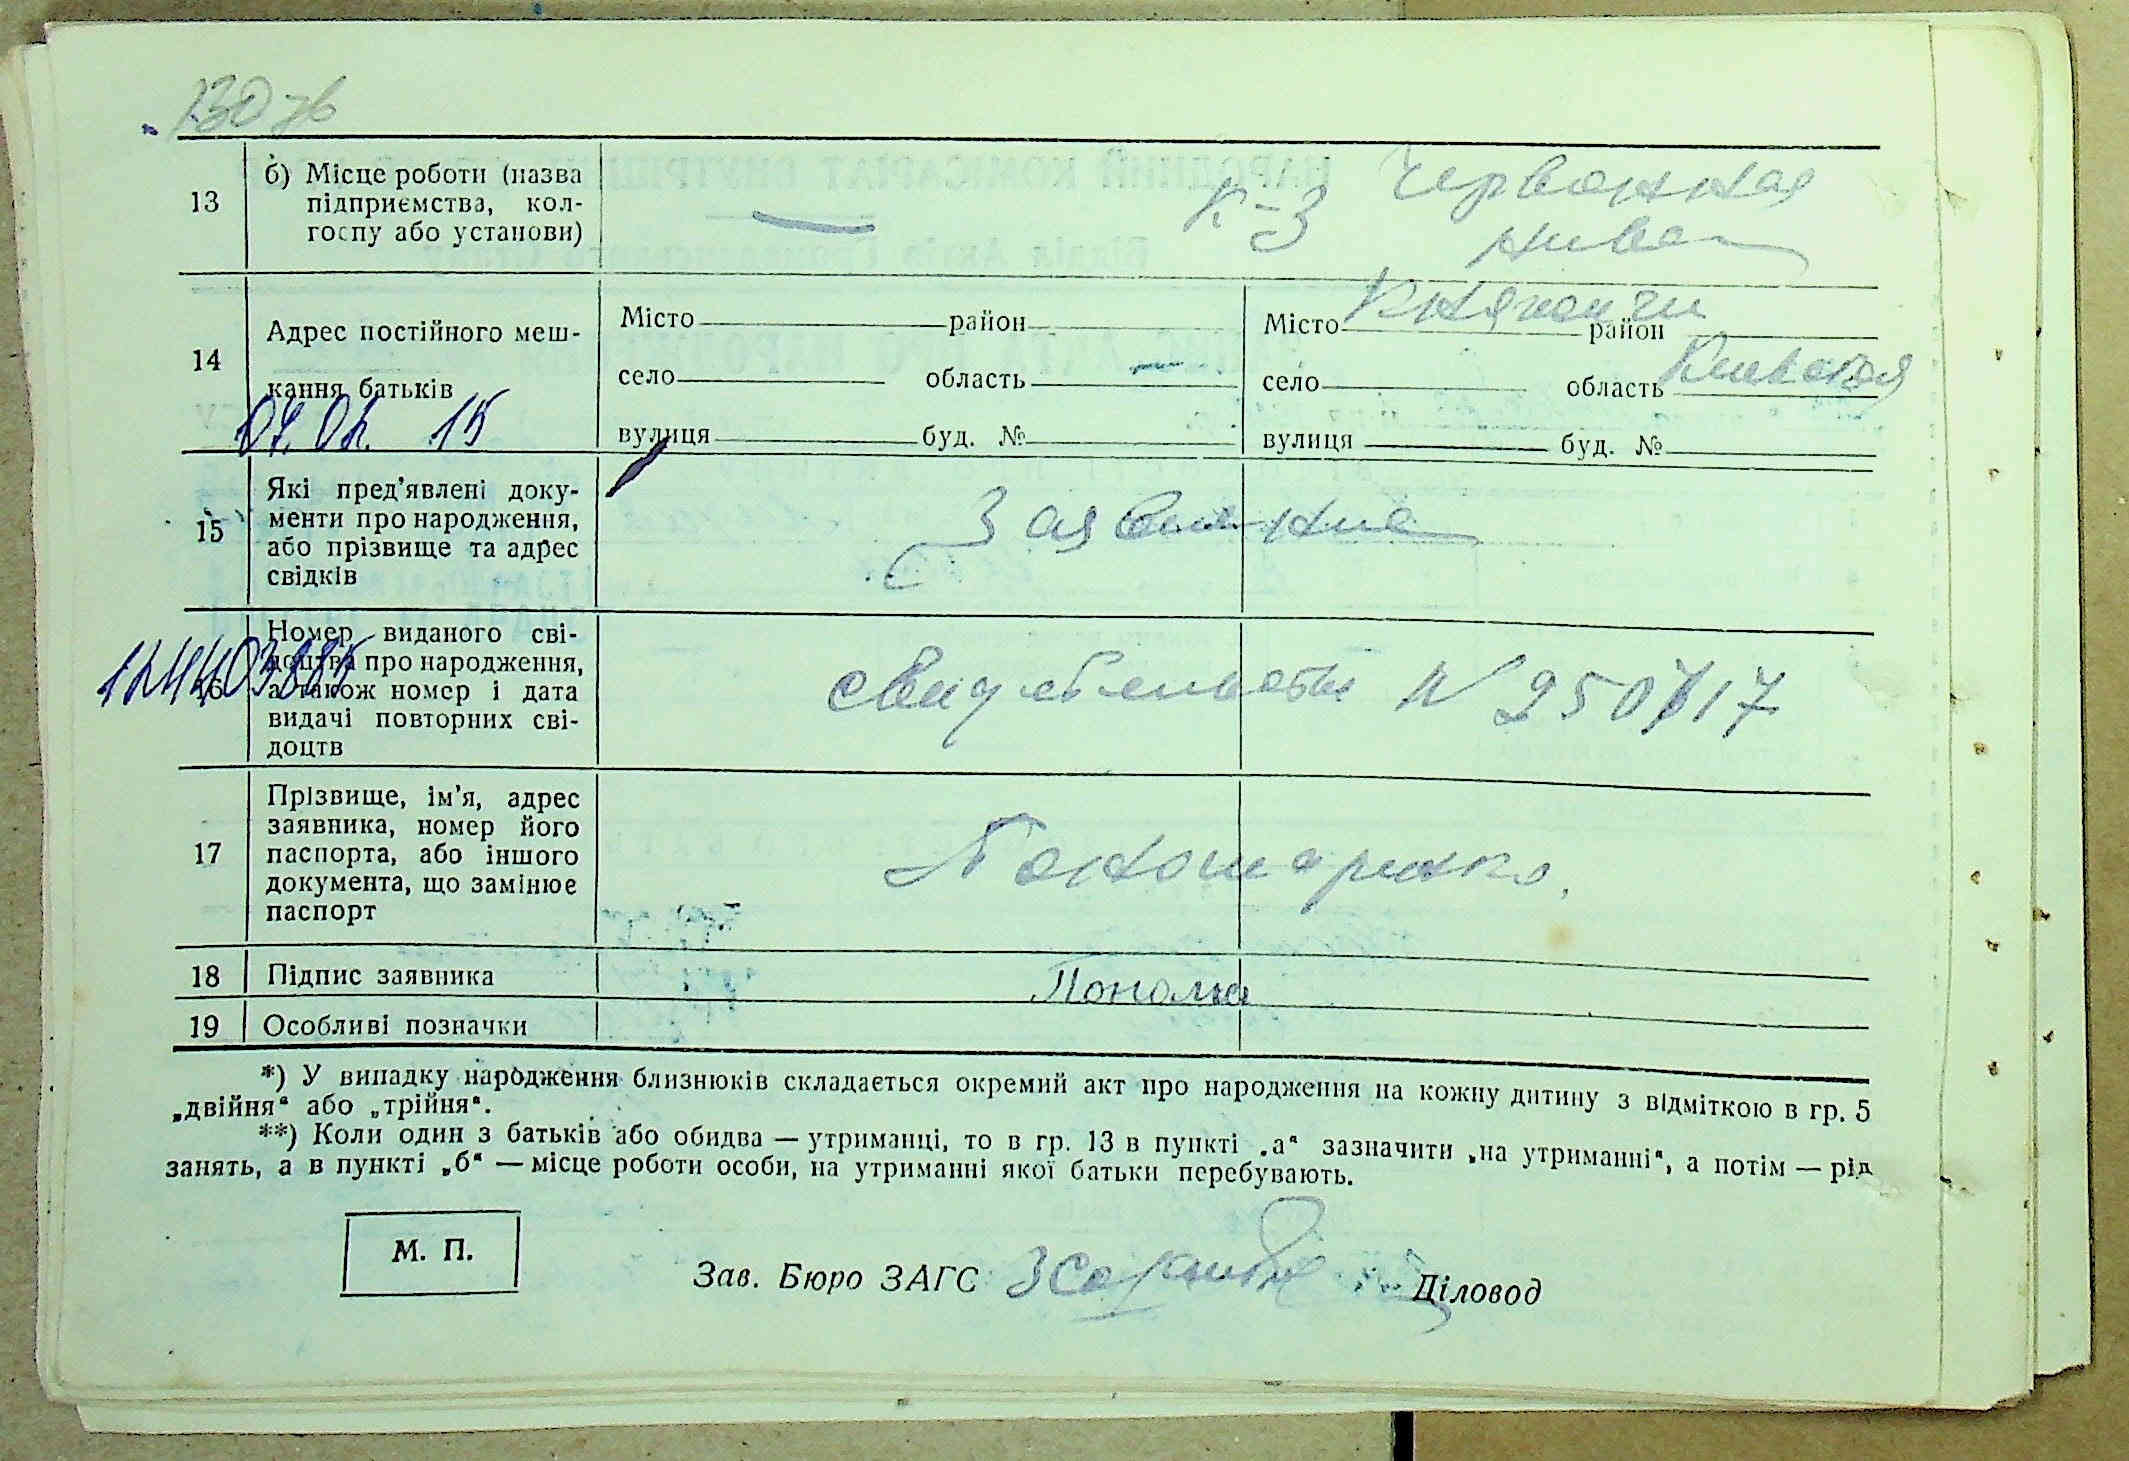 130 зв
13
б) Місце роботи (назва
підприємства, кол-
госпу або установи)
к-з Червонная
нива
14
Адрес постійного меш-
кання батьків
Місто район
село область
вулиця буд. №
Місто Княжичи район
село область Киевская
вулиця буд. №
04.02.15
15
Які пред'явлені доку-
менти про народження,
або прізвище та адрес
свідків
Заявление
16
Номер виданого сві-
доцтва про народження,
а також номер і дата
видачі повторних сві-
доцтв
свидетельство N 250717
17
Прізвище, ім'я, адрес
заявника, номер його
паспорта, або іншого
документа, що замінює
паспорт
Пономаренко.
18
Підпис заявника
Понома
19
Особливі позначки
*) У випадку народження близнюків складається окремий акт про народження на кожну дитину з відміткою в гр. 5
„двійня" або „трійня".
**) Коли один з батьків або обидва — утриманці, то в гр. 13 в пункті „а" зазначити „на утриманні", а потім — рід
занять, а в пункті „б" — місце роботи особи, на утриманні якої батьки перебувають.
М. П.
Зав. Бюро ЗАГС
Діловод